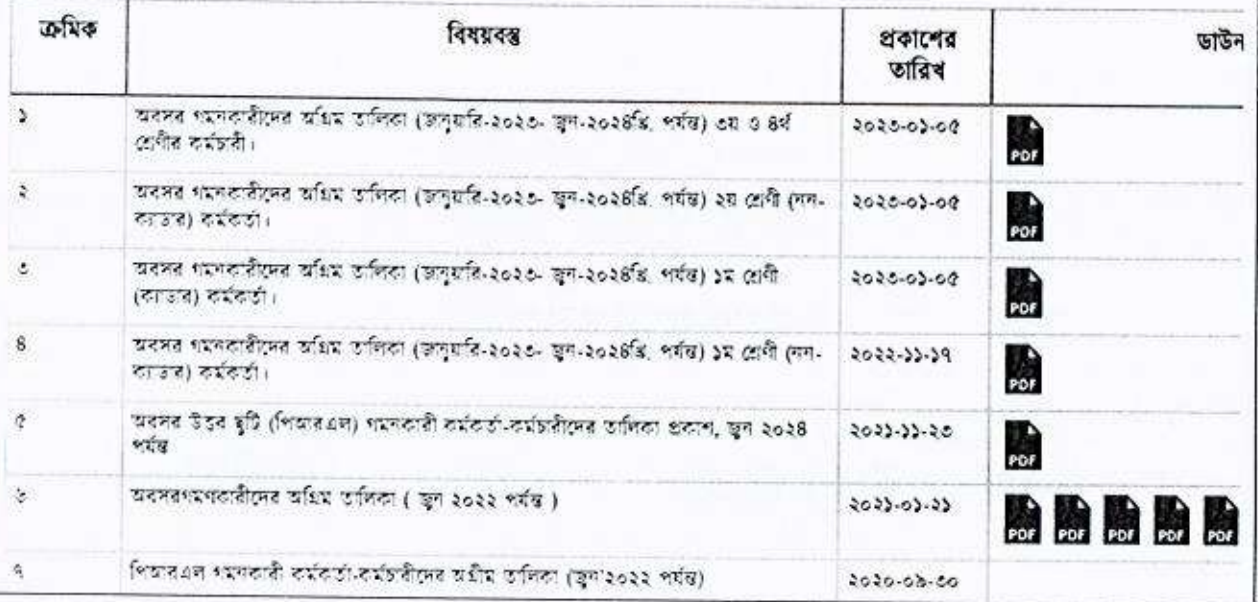 ক্রমিক বিষয়বস্তু প্রকাশের তারিখ ডাউন
১ অবসর গমনকারীদের অগ্রিম তালিকা (জানুয়ারি-২০২৩- জুন-২০২৪খ্রি. পর্যন্ত) ৩য় ও ৪র্থ ২০২৩-০১-০৫ PDF
শ্রেণীর কর্মচারী।
২ অবসর গমনকারীদের অগ্রিম তালিকা (জানুয়ারি-২০২৩- জুন-২০২৪খ্রি. পর্যন্ত) ২য় শ্রেণী (নন- ২০২৩-০১-০৫ PDF
ক্যাডার) কর্মকর্তা।
৩ অবসর গমনকারীদের অগ্রিম তালিকা (জানুয়ারি-২০২৩- জুন-২০২৪খ্রি. পর্যন্ত) ১ম শ্রেণী ২০২৩-০১-০৫ PDF
(ক্যাডার) কর্মকর্তা।
৪ অবসর গমনকারীদের অগ্রিম তালিকা (জানুয়ারি-২০২৩- জুন-২০২৪খ্রি. পর্যন্ত) ১ম শ্রেণী (নন- ২০২২-১১-১৭ PDF
ক্যাডার) কর্মকর্তা।
৫ অবসর উত্তর ছুটি (পিআরএল) গমনকারী কর্মকর্তা-কর্মচারীদের তালিকা প্রকাশ, জুন ২০২৪ ২০২১-১১-২৩ PDF
পর্যন্ত
৬ অবসরগমণকারীদের অগ্রিম তালিকা ( জুন ২০২২ পর্যন্ত ) ২০২১-০১-২১ PDF PDF PDF PDF PDF
৭ পিআরএল গমনকারী কর্মকর্তা-কর্মচারীদের অগ্রীম তালিকা (জুন'২০২২ পর্যন্ত) ২০২০-০৯-৩০